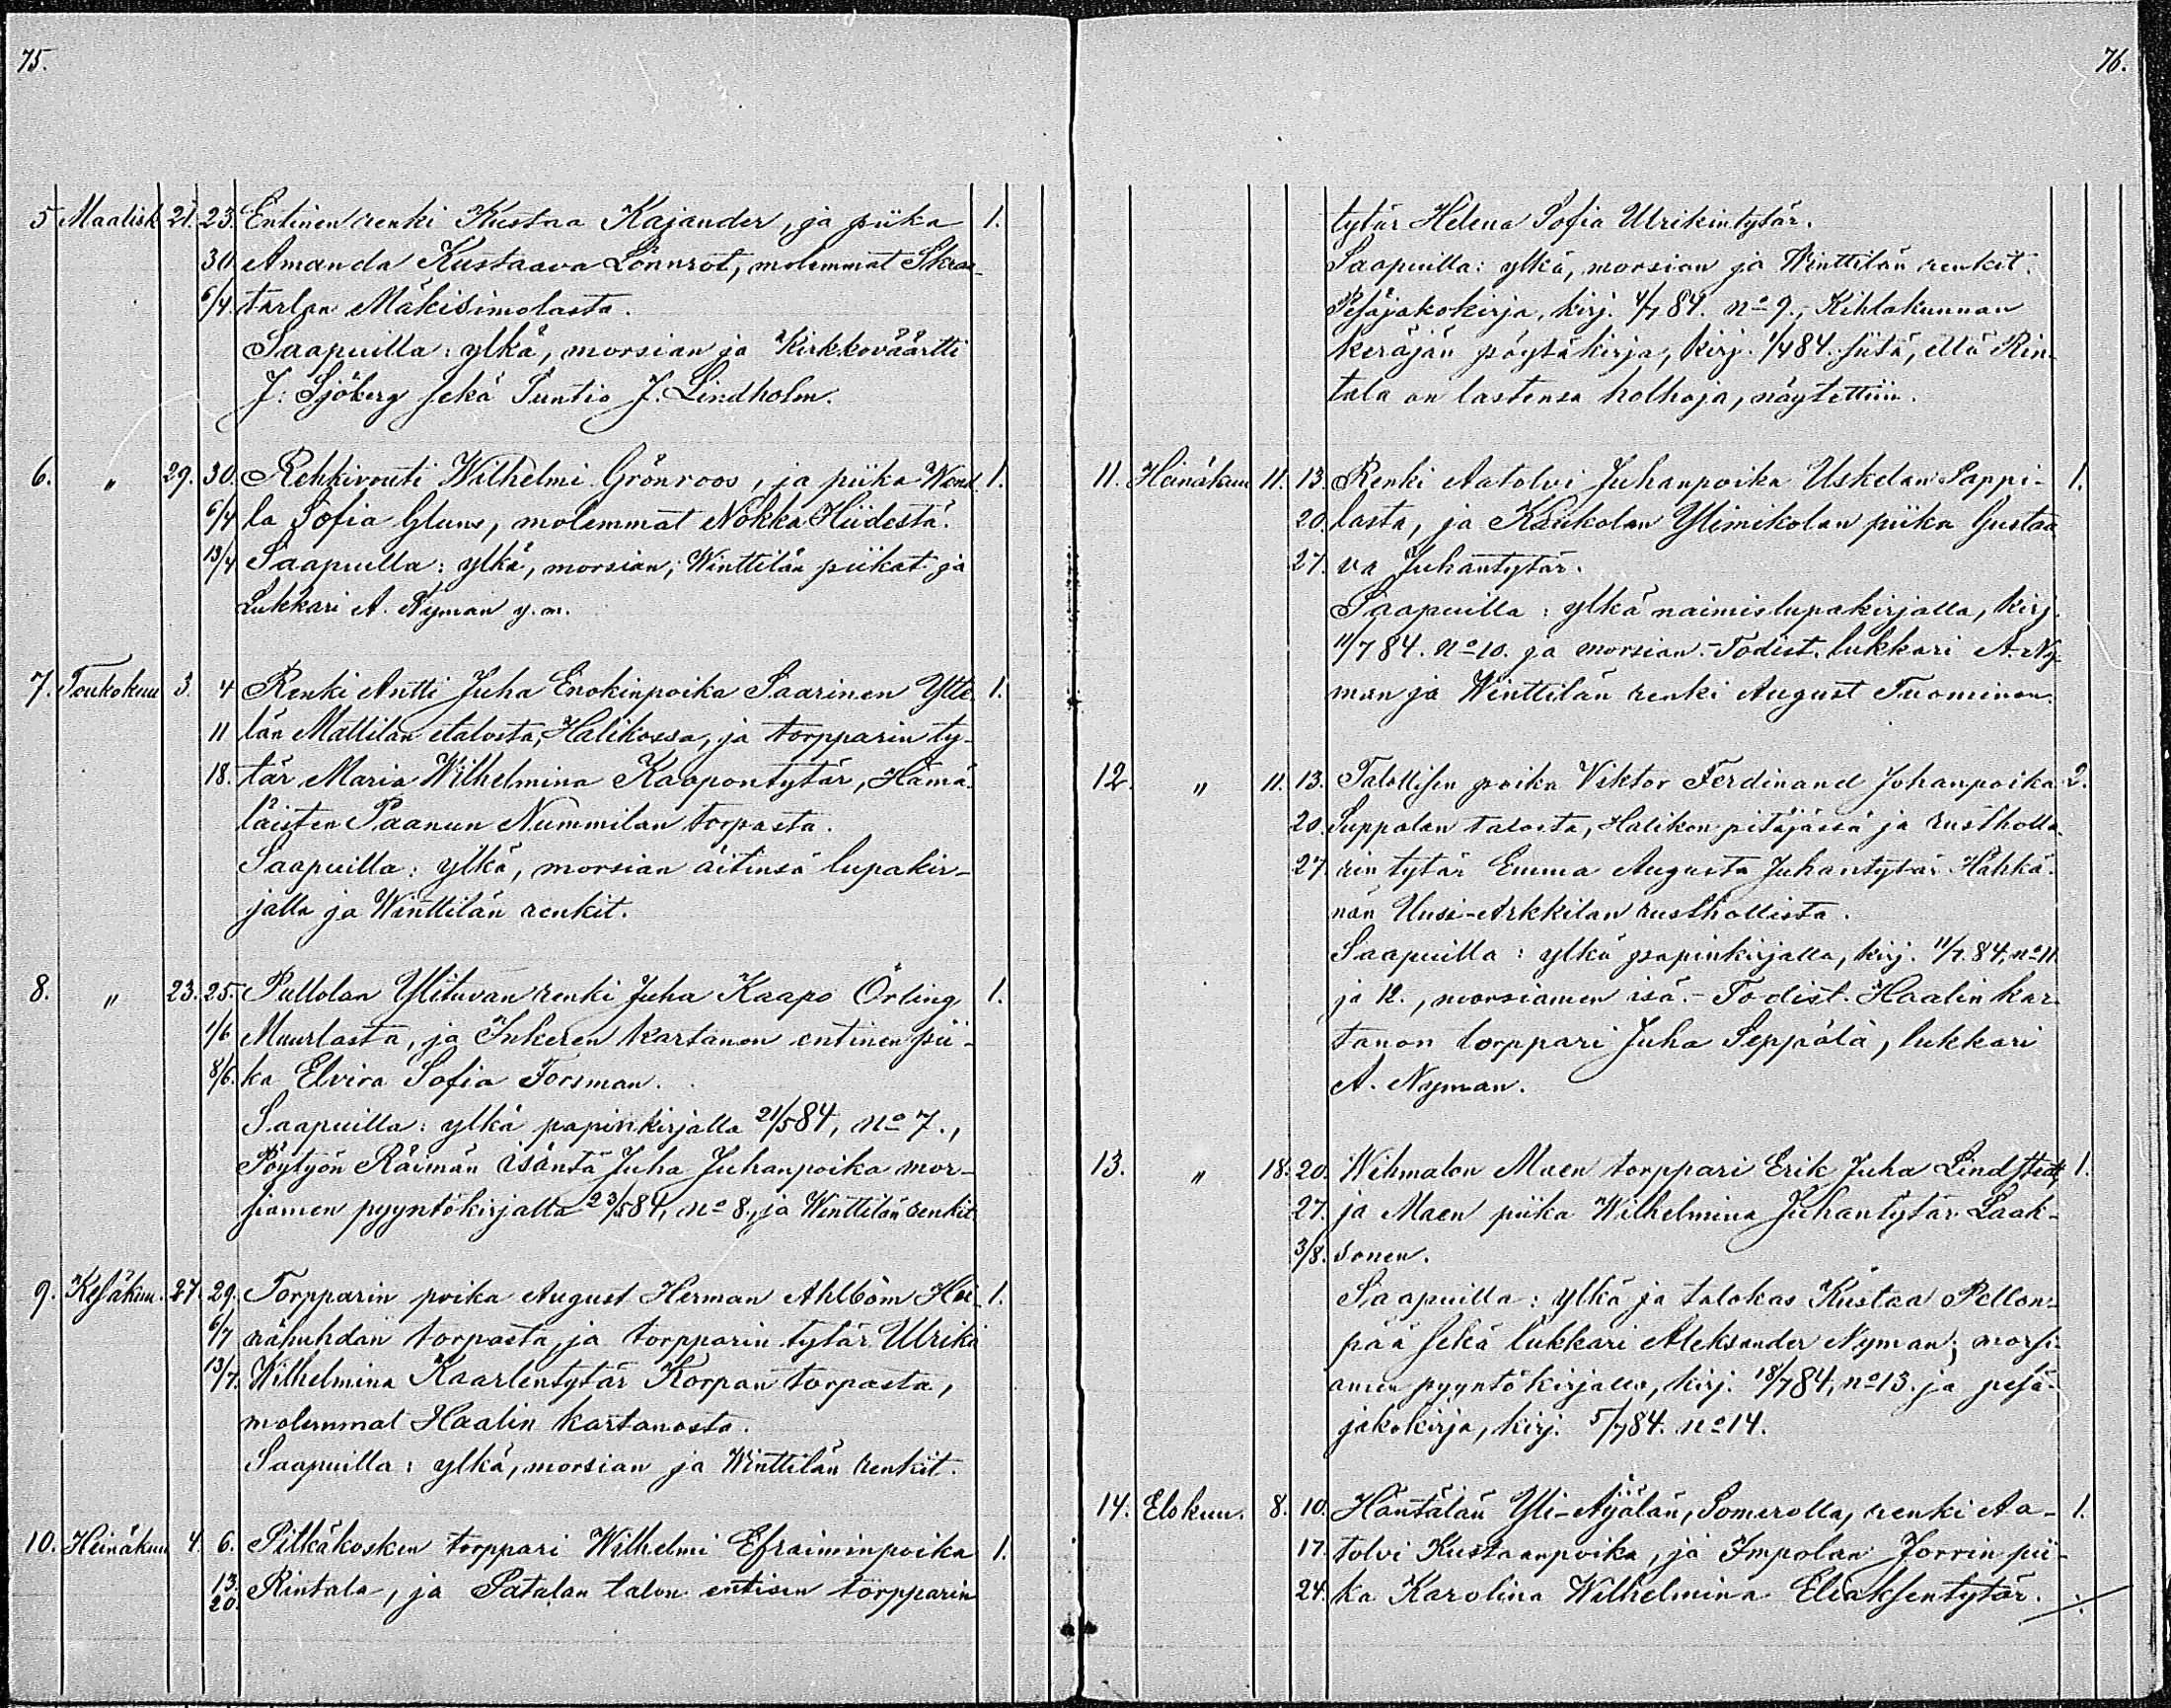 75.
5 Maalisk 21. 23. Entinen renki Kustaa Kajander, ja piika 1.
30. Amanda Kustaava Lönnrot, molemmat Skraa-
6/4. tarlan Mäkisimolasta.
Saapuilla: ylkä, morsian ja Kirkkoväärtti
J. Sjöberg sekä Suntio J. Lindholm.
6. " 29. 30. Rehkivouti Wilhelmi Grönroos, ja piika Wend- 1.
6/4 la Sofia Gluns, molemmat Nokka Hiidestä.
13/4 Saapuilla: ylkä, morsian, Winttilän piikat ja
Lukkari A. Nyman y. m.
7. Toukokuu 3. 4 Renki Antti Juha Enokinpoika Saarinen Ylte- 1.
11 län Mattilan talosta, Halikossa, ja torpparin ty-
18. tär Maria Wilhelmina Kaapontytär, Hämä-
läisten Paanun Nummilan torpasta.
Saapuilla: ylkä, morsian äitinsä lupakir-
jalla ja Winttilän renkit.
8. " 23. 25. Pullolan Ylituvan renki Juha Kaapo Örling 1.
1/6 Muurlasta, ja Inkeren kartanon entinen pii-
8/6. ka Elvira Sofia Forsman.
Saapuilla: ylkä papinkirjalla 21/5 84, No 7.,
Pöytyön Räimän isäntä Juha Juhanpoika mor-
siamen pyyntökirjalla 23/5 84, No 8., ja Winttilän renkit
9. Kesäkuu. 27. 29. Torpparin poika August Herman Ahlbom Hei- 1.
6/7 nähuhdan torpasta, ja torpparin tytär Ulrika
13/7. Wilhelmina Kaarlentytär Korpan torpasta,
molemmat Haalin kartanosta.
Saapuilla: ylkä, morsian ja Winttilän renkit.
10. Heinäkuu 4. 6. Pitkäkosken torppari Wilhelmi Efraiminpoika 1.
13. 20. Rintala, ja Satalan talon entisen torpparin
76.
tytär Helena Sofia Ulrikintytär.
Saapuilla: ylkä, morsian ja Winttilän renkit.
Pesäjakokirja, kirj. 4/7 84. No 9., Kihlakunnan
keräjän pöytäkirja, kirj. 1/4 84. siitä, että Rin-
tala on lastensa holhoja, näytettiin.
11. Heinäkuu 11. 13. Renki Aatolvi Juhanpoika Uskelan Pappi- 1.
20. lasta, ja Kaukolan Ylimikolan piika Gustaa-
27. va Juhantytär.
Saapuilla: ylkä naimislupakirjalla, kirj.
11/7 84. No 10. ja morsian. - Todist. lukkari A. Ny-
man ja Winttilän renki August Tuominen.
12. " 11. 13. Talollisen poika Viktor Ferdinand Johanpoika 2.
20. Suppalan talosta, Halikon pitäjässä ja rustholla-
27. rin tytär Emma Augusta Juhantytär Hähkä-
nän Uusi-Arkkilan rusthollista.
Saapuilla: ylkä papinkirjalla, kirj. 11/7. 84, No 11
ja 12., morsiamen isä. - Todist. Haalin kar-
tanon torppari Juha Seppälä, lukkari
A. Nyman.
13. " 18. 20. Wihmalon Maen torppari Erik Juha Lindstedt, 1.
27. ja Maen piika Wilhelmina Juhantytär Laak-
3/8. sonen.
Saapuilla: ylkä ja talokas Kustaa Pellon-
pää sekä lukkari Aleksander Nyman; morsi-
amen pyyntökirjalla, kirj. 18/7 84, No 13. ja pesä-
jakokirja, kirj. 5/7 84. No 14.
14. Elokuu. 8. 10. Häntälän Yli-Äijälän, Somerolla, renki Aa- 1.
17. tolvi Kustaanpoika, ja Impolan Jorrin pii-
24. ka Karolina Wilhelmina Eleaksentytär.